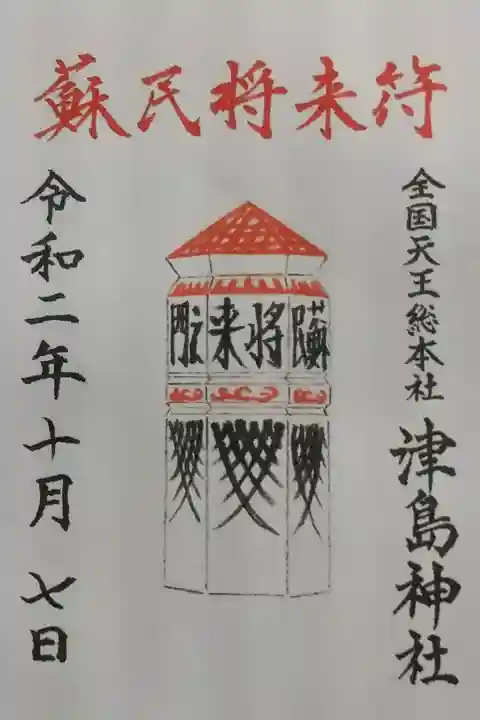 蘇民将来符
全国天王総本社
津島神社
蘓
将来
之門
令和二年十月七日